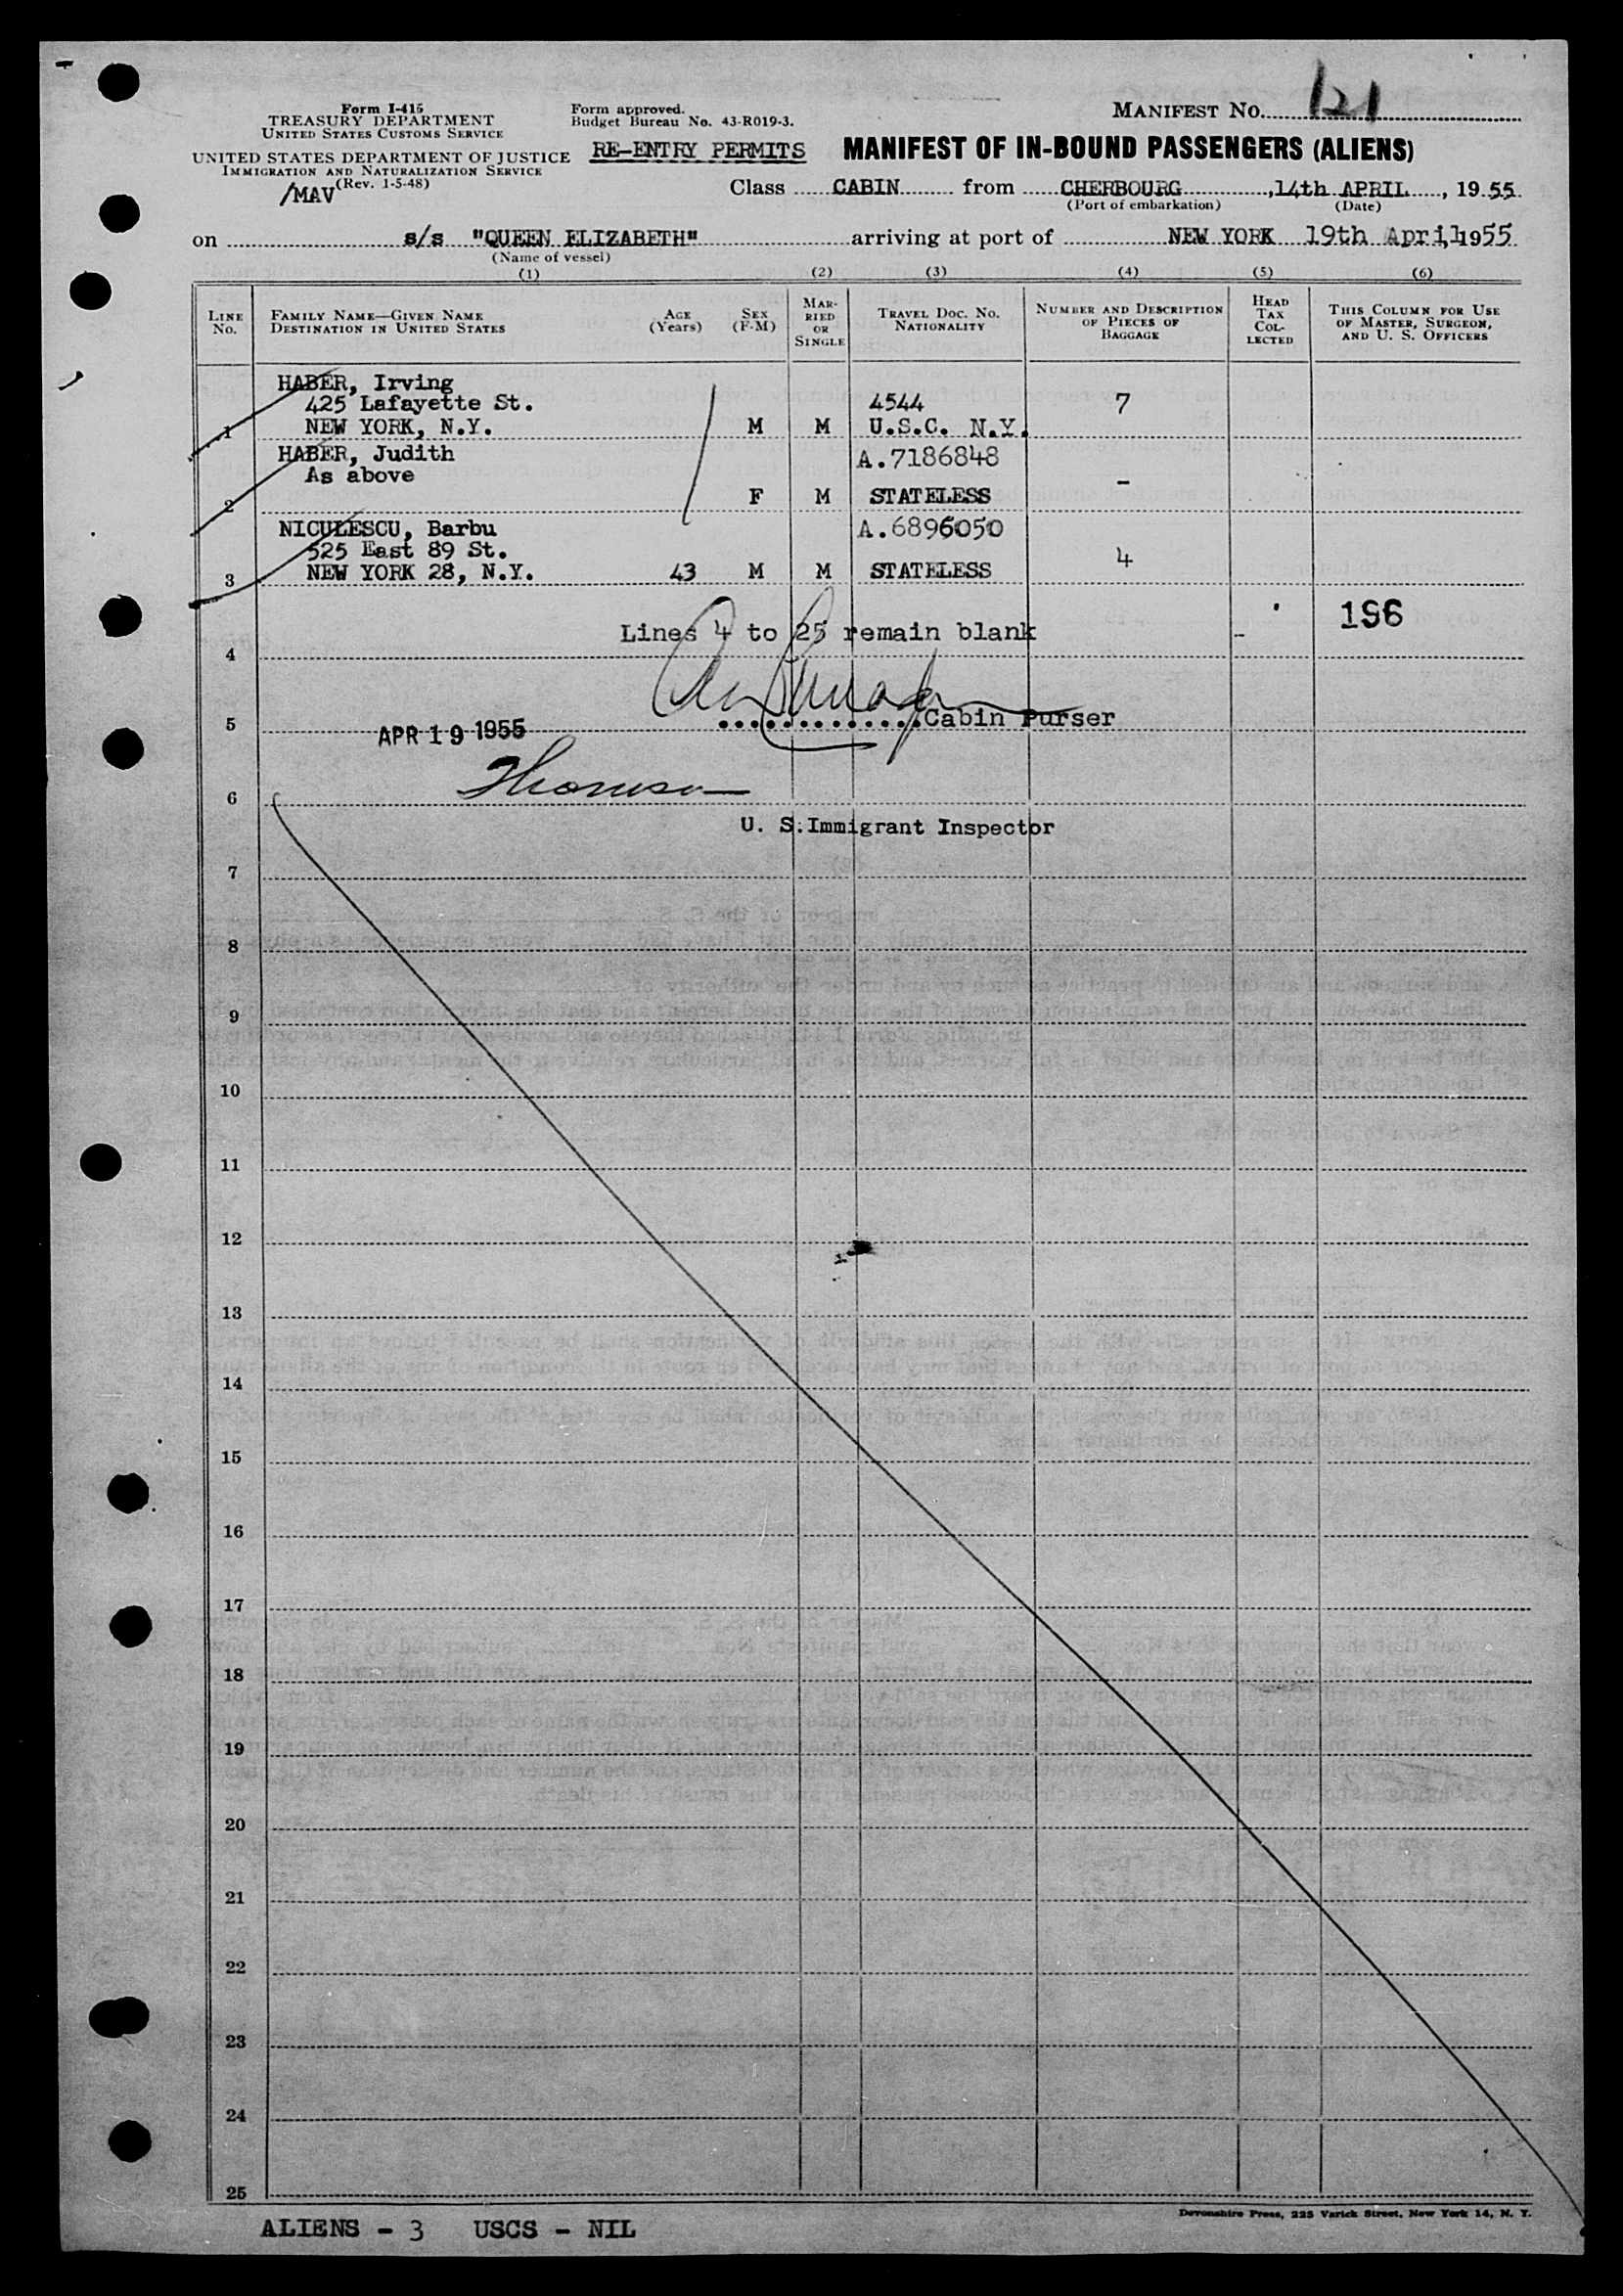 MANIFEST NO. 121
Form I-415
TREASURY DEPARTMENT
UNITED STATES CUSTOMS SERVICE
Form approved.
Budget Bureau No. 43-R019-3.
UNITED STATES DEPARTMENT OF JUSTICE
IMMIGRATION AND NATURALIZATION SERVICE
(Rev. 1-5-48)
/MAV
RE-ENTRY PERMITS
MANIFEST OF IN-BOUND PASSENGERS (ALIENS)
Class CABIN from CHERBOURG, 14th APRIL, 1955
(Port of embarkation) (Date)
on s/s "QUEEN ELIZABETH" arriving at port of NEW YORK 19th April, 1955
(Name of vessel)
(1) (2) (3) (4) (5) (6)
LINE NO.
FAMILY NAME—GIVEN NAME
DESTINATION IN UNITED STATES
AGE (Years)
SEX (F-M)
MARRIED OR SINGLE
TRAVEL DOC. NO.
NATIONALITY
NUMBER AND DESCRIPTION OF PIECES OF BAGGAGE
HEAD TAX COLLECTED
THIS COLUMN FOR USE OF MASTER, SURGEON, AND U. S. OFFICERS
HABER, Irving
425 Lafayette St. 4544 7
1 NEW YORK, N.Y. M M U.S.C. N.Y.
HABER, Judith A.7186848
As above -
2 F M STATELESS
NICULESCU, Barbu A.6896050
525 East 89 St. 4
3 NEW YORK 28, N.Y. 43 M M STATELESS
196
Lines 4 to 25 remain blank -
4
5 APR 19 1955 Cabin Purser
6
U. S. Immigrant Inspector
7
8
9
10
11
12
13
14
15
16
17
18
19
20
21
22
23
24
25
Devonshire Press, 225 Varick Street, New York 14, N. Y.
ALIENS - 3 USCS - NIL